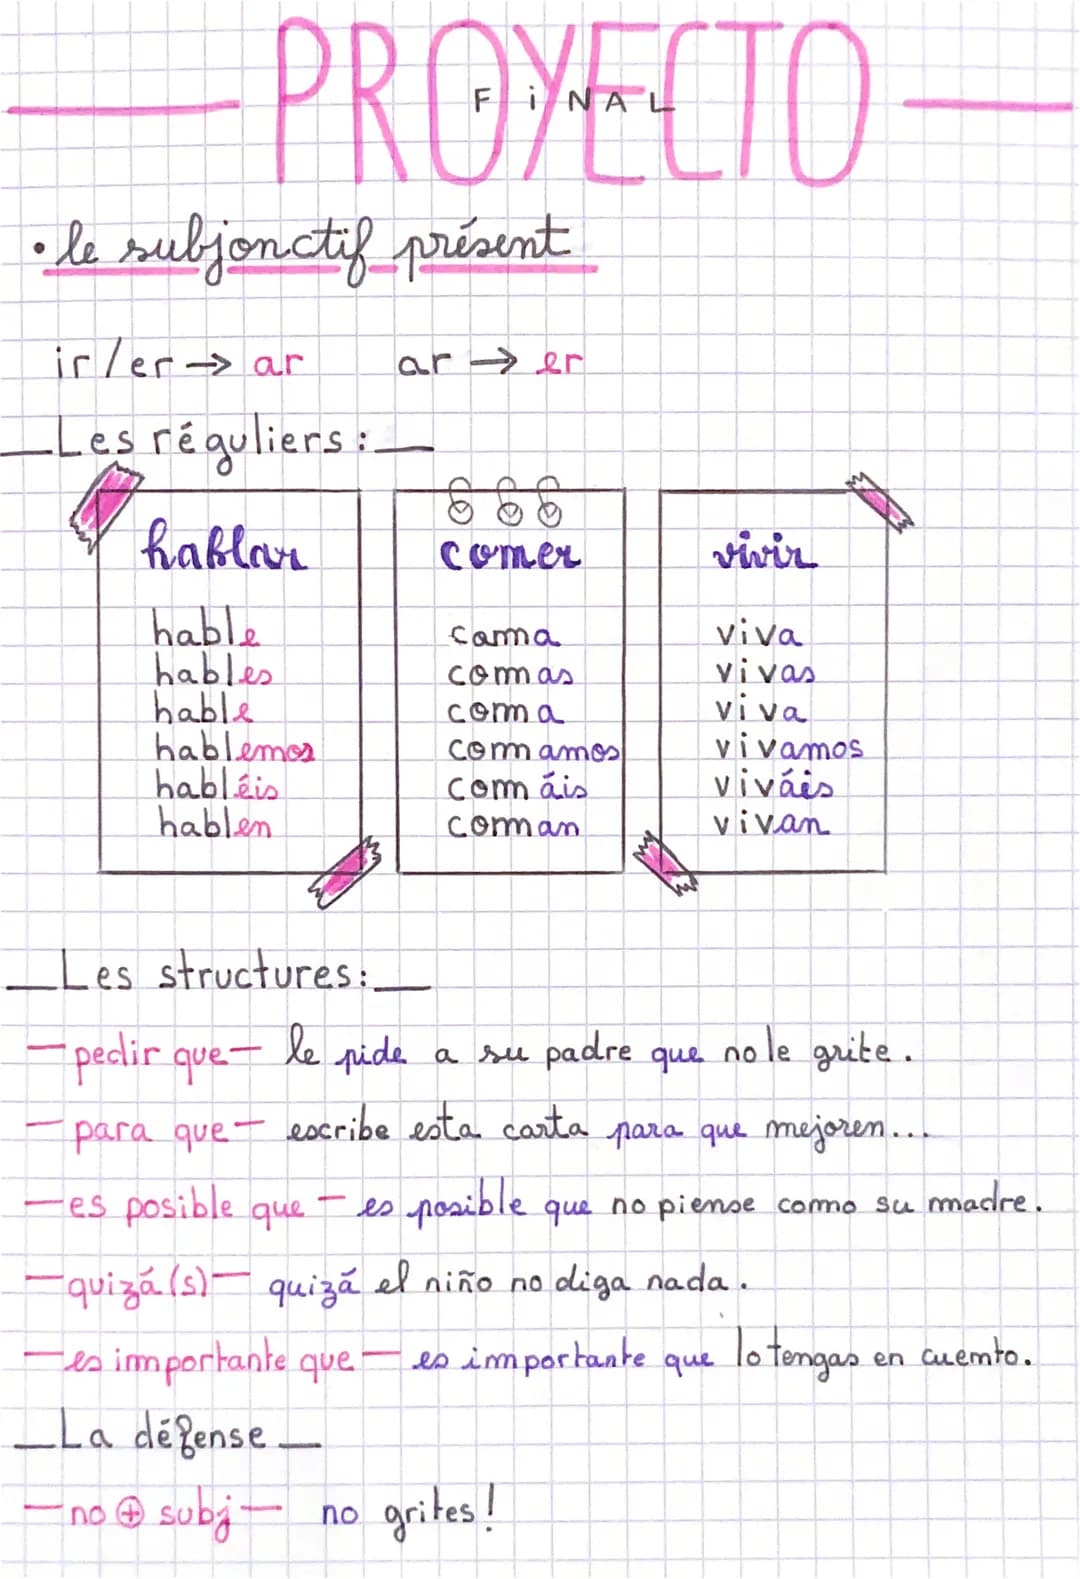 PROYECTO
FiNAL
• le subjonctif présent
ir/er → ar ar → er
Les réguliers:
hablar
hable
hables
hable
hablemos
habléis
hablen
comer
coma
comas
coma
comamos
comáis
coman
vivir
viva
vivas
viva
vivamos
viváis
vivan
Les structures:
— pedir que — le pide a su padre que no le grite.
— para que — escribe esta carta para que mejoren...
— es posible que — es posible que no piense como su madre.
— quizá(s) — quizá el niño no diga nada.
— es importante que — es importante que lo tengas en cuento.
La défense
— no ⊕ subj — no grites!